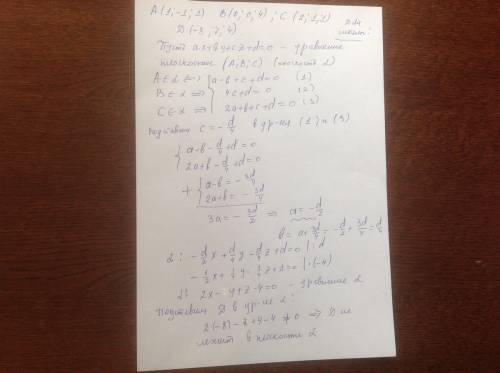 A(1;-1;1) B(0;0;4), C(2;1;1)
D(-8;7;4)
Для школы!
Пусть ax+by+cz+d=0 - уравнение
плоскости (A;B;C) (плоскость α)
A∈α ⇔ { a-b+c+d=0 (1)
B∈α ⇒ { 4c+d=0 (2)
C∈α ⇒ { 2a+b+c+d=0 (3)
Подставим c=-d/4 в ур-ия (1) и (3)
{ a-b-d/4+d=0
{ 2a+b-d/4+d=0
+ { a-b=-3d/4
{ 2a+b=-3d/4
3a=-3d/2 ⇒ a=-d/2
b=a+3d/4=-d/2+3d/4=d/4
α: -d/2 x+d/4 y-d/4 z+d=0 |:d
-1/2 x+1/4 y-1/4 z+1=0 |·(-4)
α: 2x-y+z-4=0 - уравнение α
Подставим D в ур-ие α:
2(-8)-7+4-4≠0 ⇒ D не
лежит в плоскости α